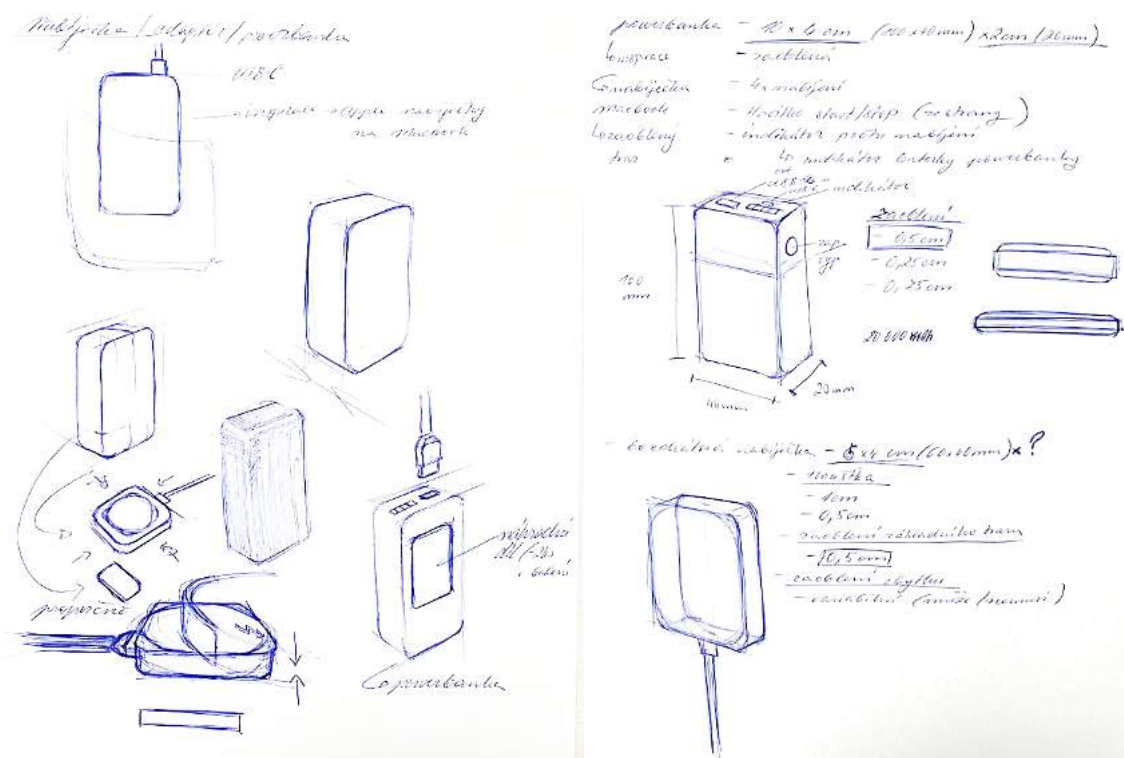 Nabíječka / adaptér / powerbanka
USB C
inspirace apple nabíječky
na macbook
proporčně
náhradní
díl
powerbanka
powerbanka - 10 x 4 cm (100 x 40 mm) x 2 cm (20 mm)
inspirace - zaoblená
nabíječka - 4x nabíjení
macbook - tlačítko start/stop (ze strany)
zaoblený - indikátor počtu nabíjení
tvar
indikátor baterky powerbanky
indikátor
zap
vyp
100
mm
40 mm
20 mm
zaoblení
- 0,5 cm
- 0,25 cm
- 0,75 cm
20 000 mAh
- bezdrátová nabíječka - 6 x 4 cm (60 x 40 mm) x ?
- tloušťka
- 1 cm
- 0,5 cm
- zaoblení základního tvaru
- 0,5 cm
- zaoblení zbytku
- variabilní (může / nemusí)